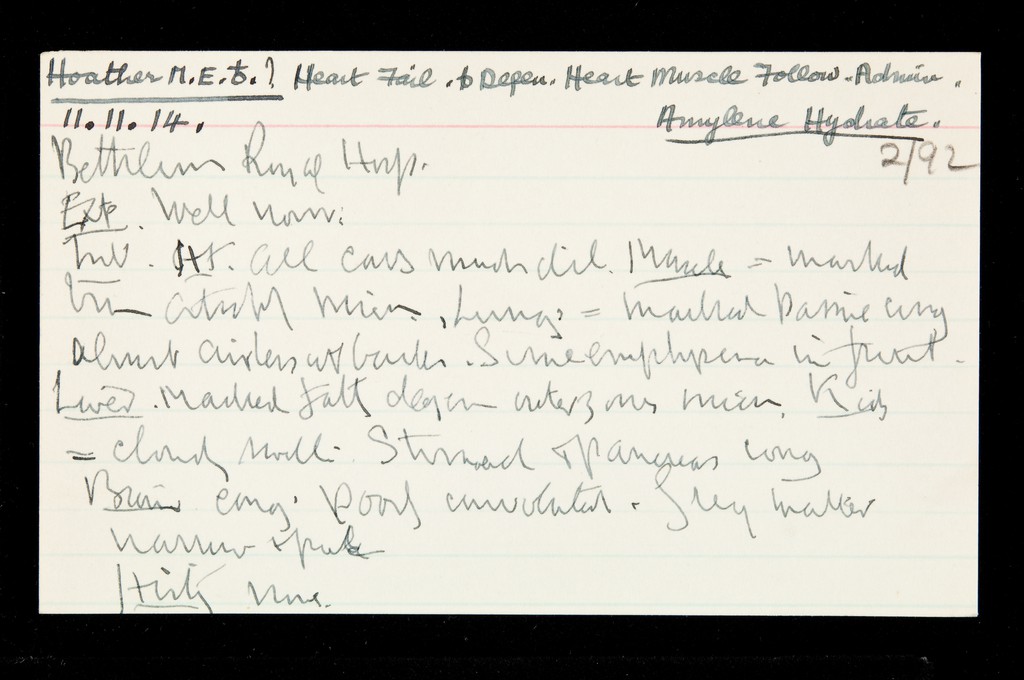 Hoather M.E.B.? Heart Fail. & Degen. Heart Muscle Follow. Admin.
11.11.14. Amylene Hydrate.
2/92
Bethlem Royal Hosp.
Ext. Well nour.
Int. Ht. All cavs much dil. Muscle = marked
micr. Lungs = marked passive cong
almost airless at backs. Some emphysema in front.
Liver. Marked fatt degen outer zones micr. Kids
= cloudy swell. Stomach & pancreas cong
Brain cong. Poorly convoluted. Grey matter
narrow & pale
Histy none.